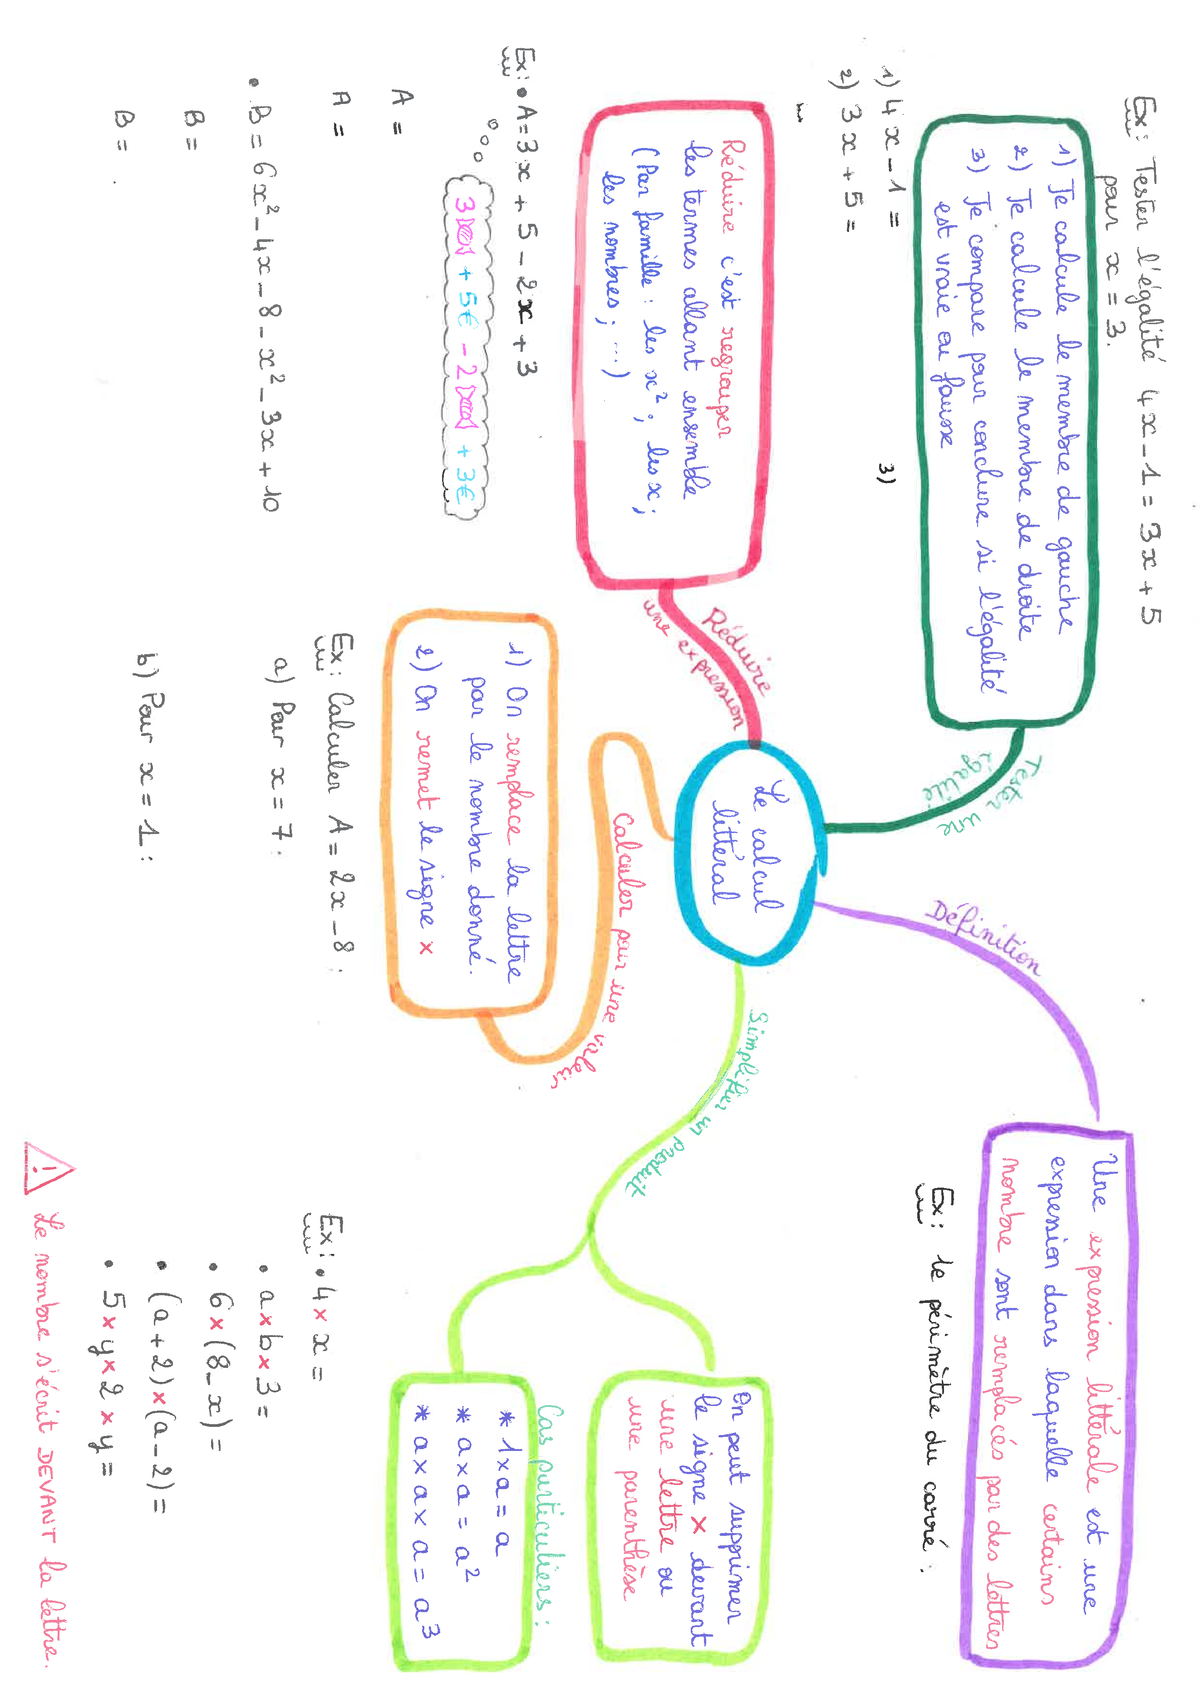 Ex: Tester l'égalité 4x-1=3x+5
pour x = 3.
1) Je calcule le membre de gauche
2) Je calcule le membre de droite
3) Je compare pour conclure si l'égalité
est vraie ou fausse
1) 4x-1 =
3)
2) 3x+5 =
Tester une
égalité
Définition
Une expression littérale est une
expression dans laquelle certains
nombre sont remplacés par des lettres
Ex: le périmètre du carré :
Le calcul
littéral
Réduire
une expression
Réduire c'est regrouper
les termes allant ensemble
(Par famille : les x²; les x;
les nombres; ...)
Ex: • A=3x+5-2x+3
3 + 5€ - 2 + 3€
A =
A =
• B = 6x²-4x-8-x²-3x+10
B =
B =
Calculer pour une valeur
1) On remplace la lettre
par le nombre donné.
2) On remet le signe ×
Ex: Calculer A = 2x-8 :
a) Pour x = 7.
b) Pour x = 1 :
Simplifier un produit
On peut supprimer
le signe × devant
une lettre ou
une parenthèse
Cas particuliers :
* 1×a = a
* a×a = a²
* a×a×a = a³
Ex: • 4×x =
• a×b×3 =
• 6×(8-x) =
• (a+2)×(a-2) =
• 5×y×2×y =
! Le nombre s'écrit DEVANT la lettre.